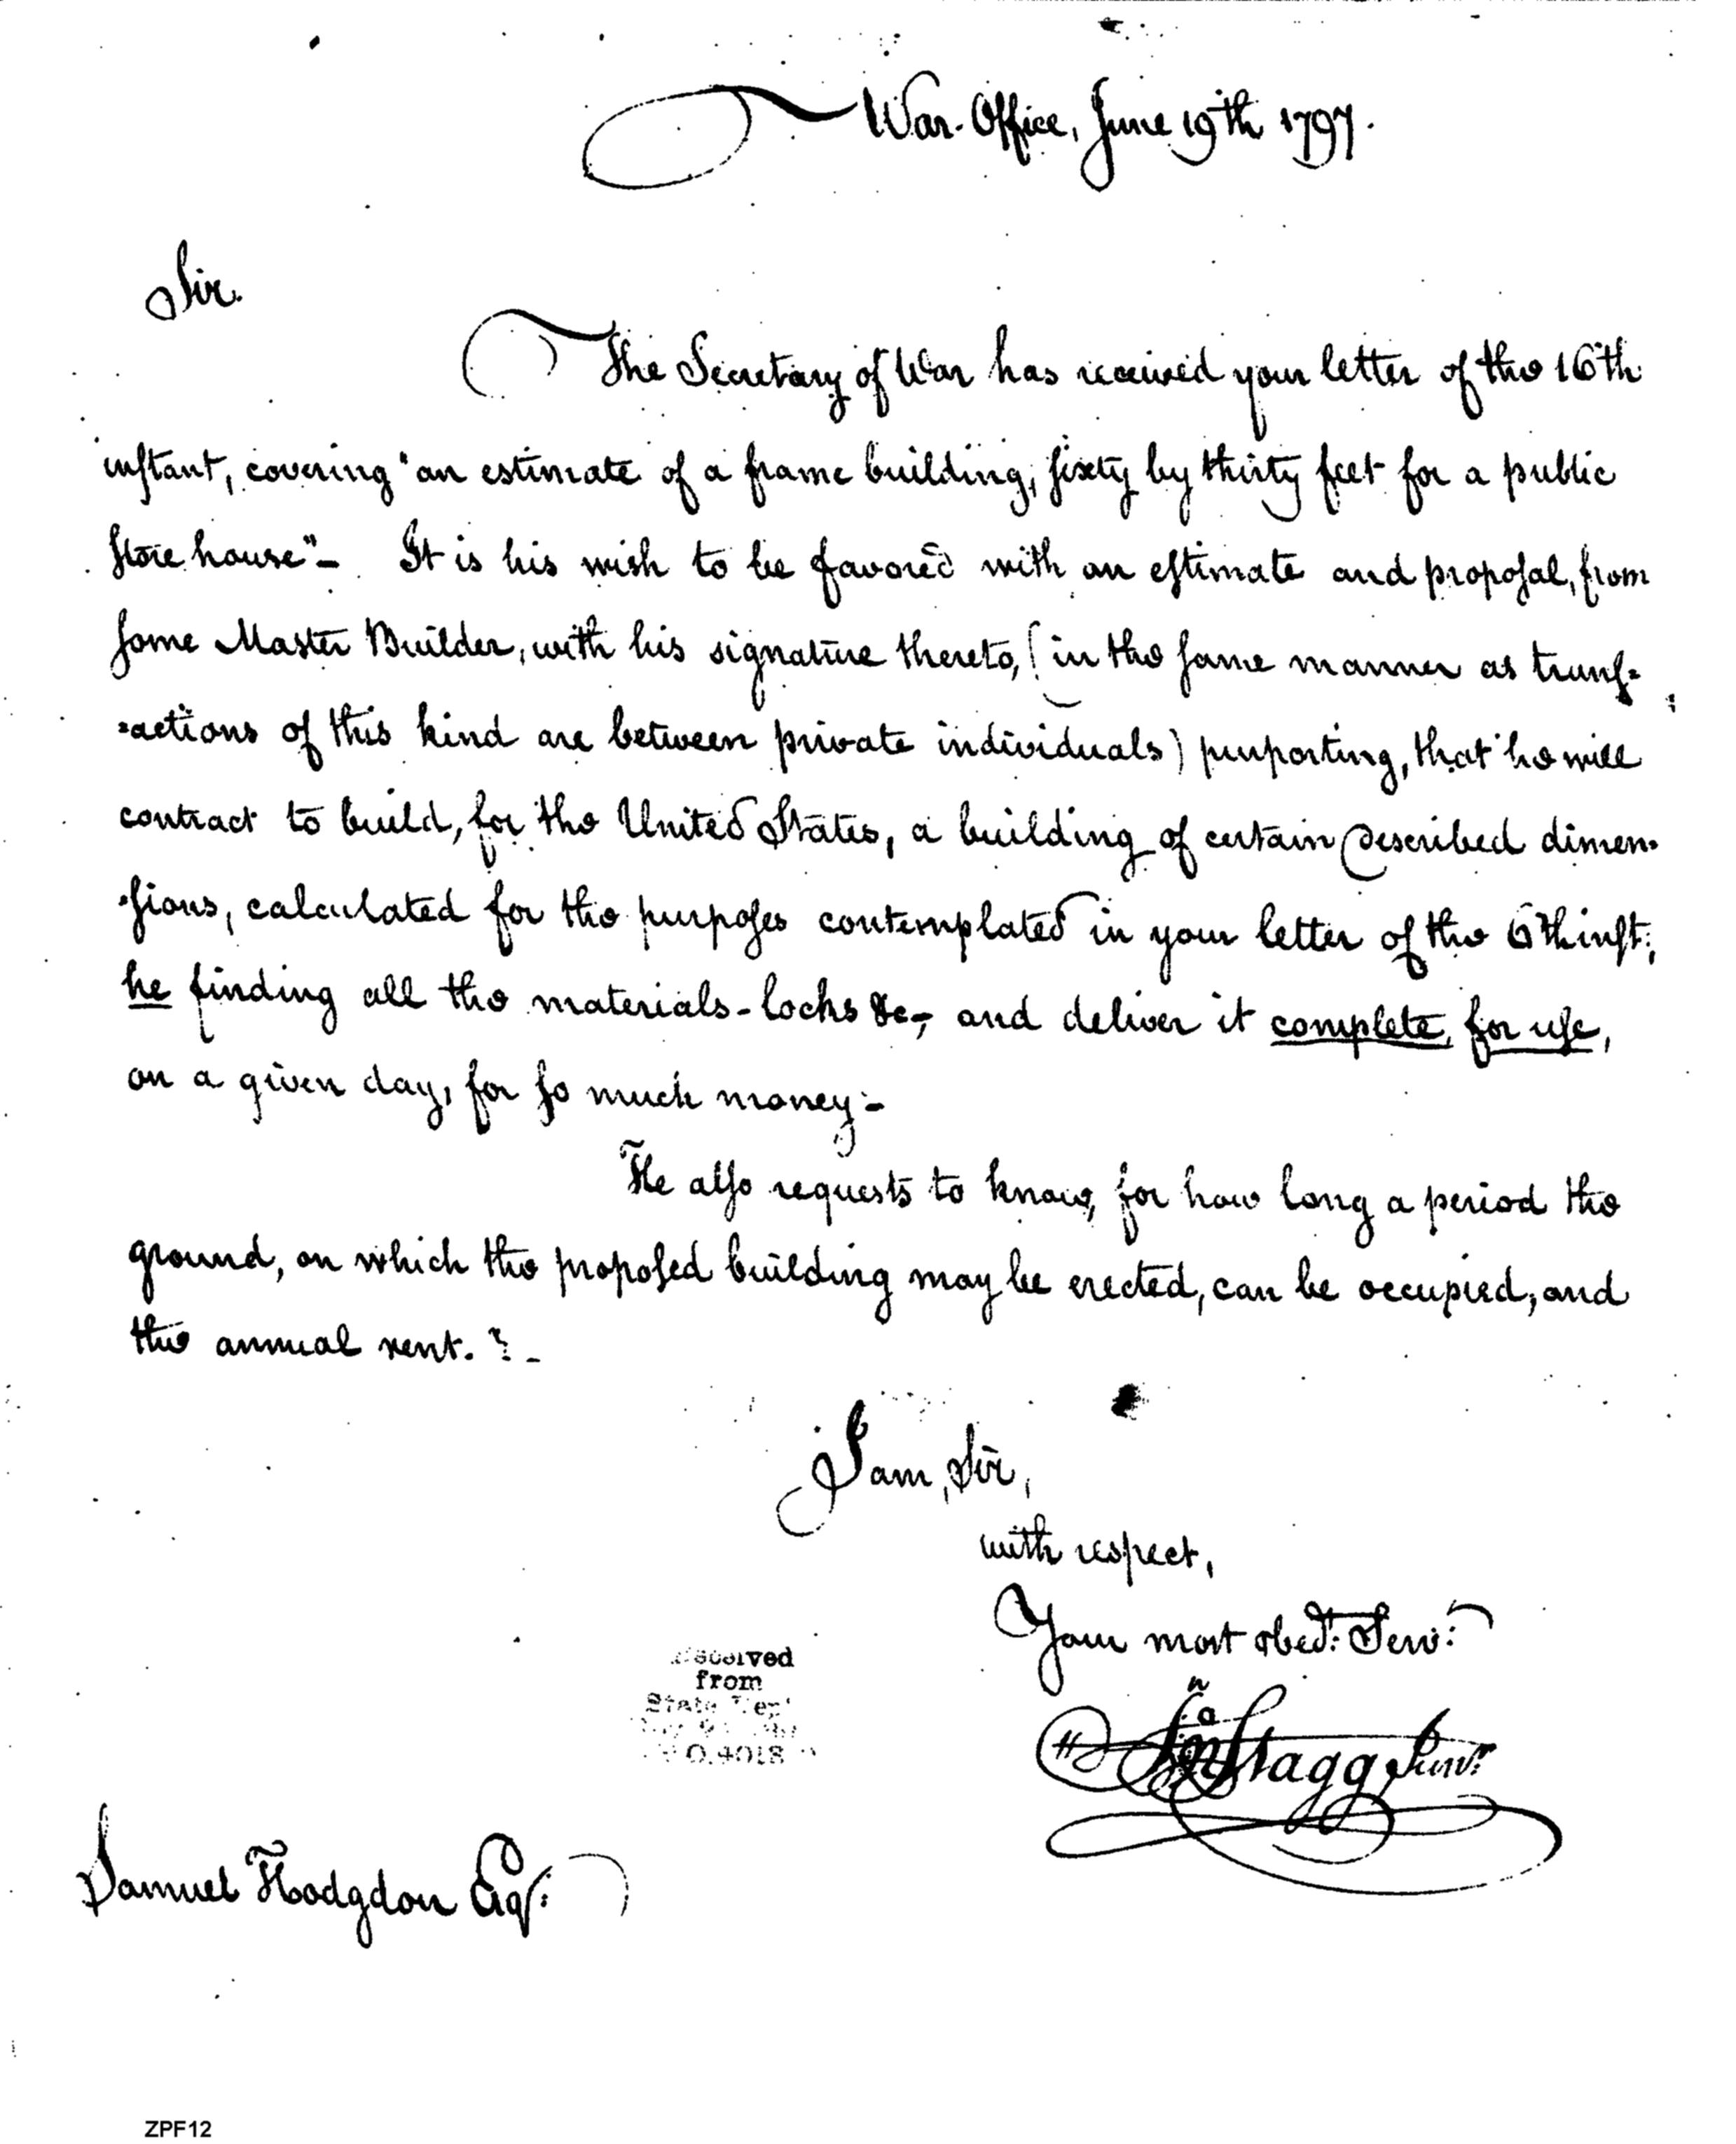 War-Office, June 19th 1797.
Sir.
The Secretary of War has received your letter of the 16th
instant, covering "an estimate of a frame building, sixty by thirty feet for a public
Store house"- It is his wish to be favored with an estimate and proposal, from
some Master Builder, with his signature thereto, (in the same manner as trans=
=actions of this kind are between private individuals) purporting, that he will
contract to build, for the United States, a building of certain described dimen-
-sions, calculated for the purposes contemplated in your letter of the 6th inst:,
he finding all the materials-locks &c-, and deliver it complete, for use,
on a given day, for so much money:-
He also requests to know, for how long a period the
ground, on which the proposed building may be erected, can be occupied, and
the annual rent.?-
I am, Sir,
with respect,
Your most obedt: Serv:
Jno Stagg Junr.
Received
from
State Dept
O.4018
Samuel Hodgdon Esqr:
ZPF12